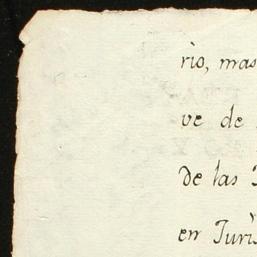 rio, mas
ve de
de las
en Juri